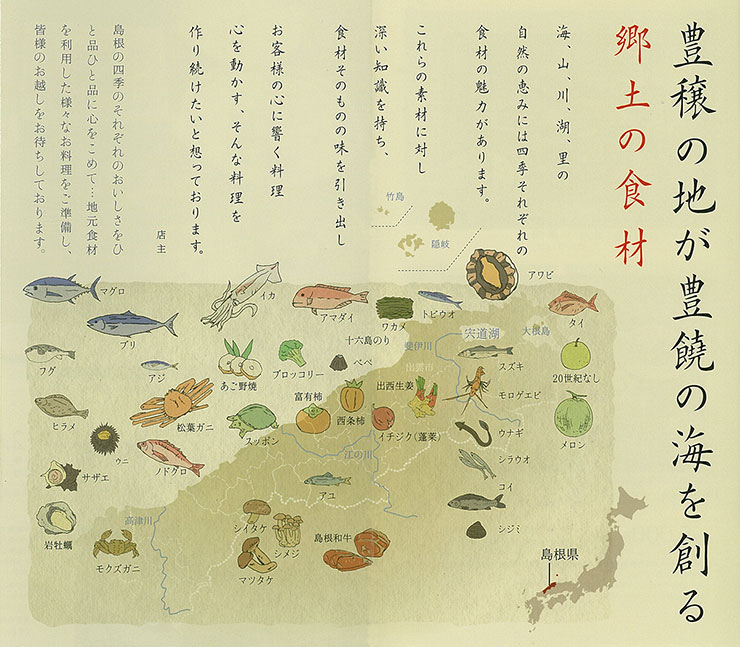 豊穣の地が豊饒の海を創る
郷土の食材
海、山、川、湖、里の
自然の恵みには四季それぞれの
食材の魅力があります。
これらの素材に対し
深い知識を持ち、
食材そのものの味を引き出し
お客様の心に響く料理
心を動かす、そんな料理を
作り続けたいと想っております。
店主
島根の四季のそれぞれのおいしさをひ
と品ひと品に心をこめて…地元食材
を利用した様々なお料理をご準備し、
皆様のお越しをお待ちしております。
竹島
隠岐
アワビ
マグロ
イカ
アマダイ
ワカメ
トビウオ
タイ
ブリ
十六島のり
斐伊川
宍道湖
大根島
フグ
アジ
あご野焼
ブロッコリー
べべ
出雲市
スズキ
20世紀なし
富有柿
西条柿
出西生姜
モロゲエビ
ヒラメ
松葉ガニ
スッポン
イチジク(蓬莱)
ウナギ
メロン
ウニ
ノドグロ
江の川
シラウオ
サザエ
アユ
コイ
岩牡蠣
高津川
シイタケ
シメジ
島根和牛
シジミ
モクズガニ
マツタケ
島根県